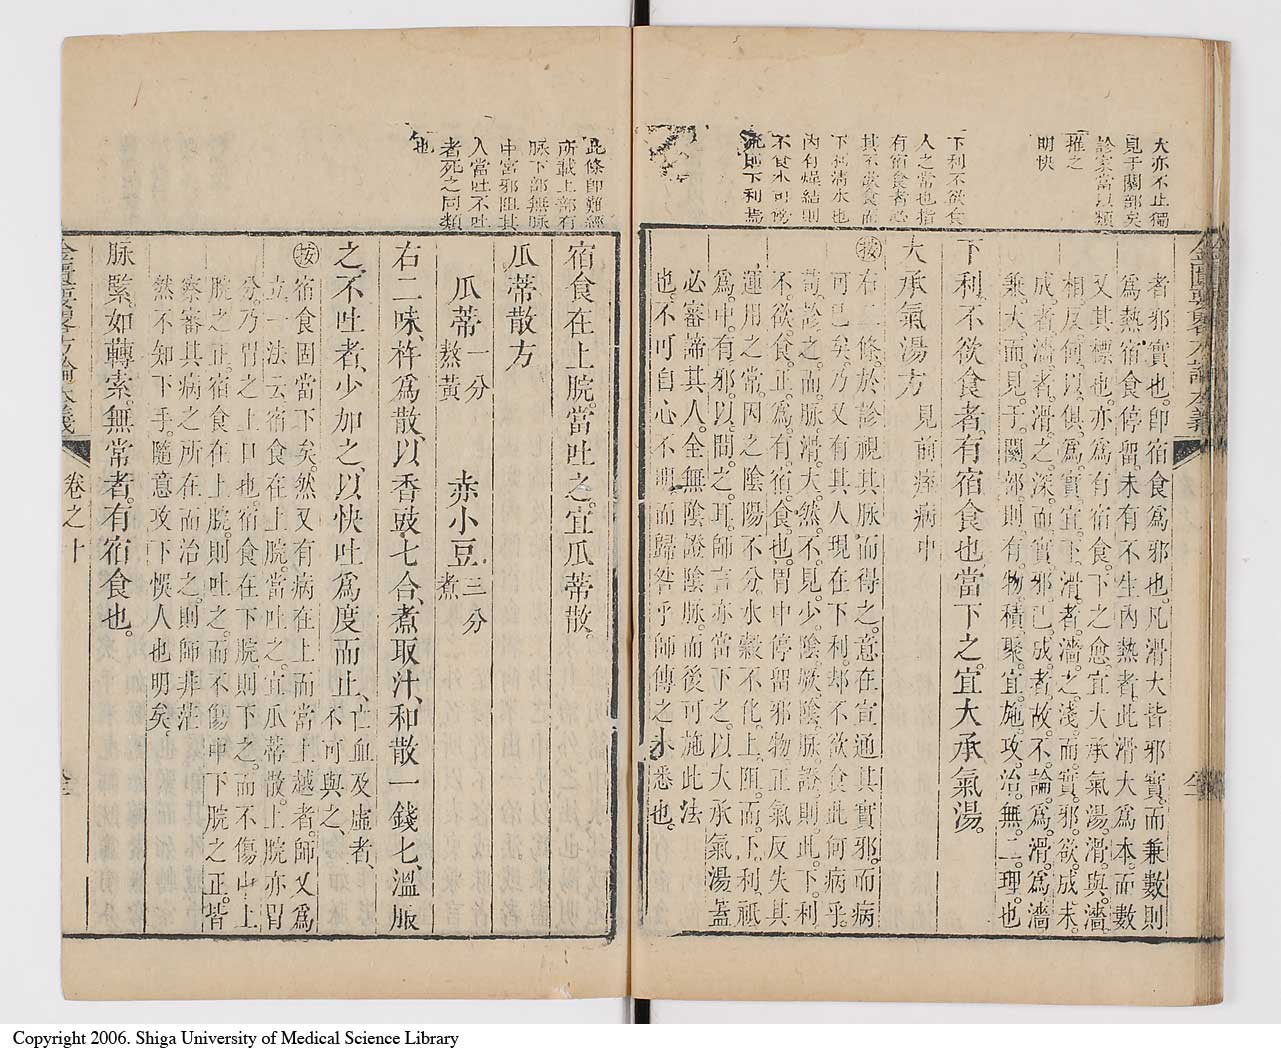 大亦不止獨
見于關部矣
診家當以類
推之
明快
下利不欲食
人之常也指
有宿食者必
其不欲食而
下利清水也
內有燥結則
不食水可
則下利
金匱要畧方論本義
者邪實也卽宿食爲邪也凡滑大皆邪實而兼數則
爲熱宿食停留未有不生內熱者此滑大爲本而數
又其標也亦爲有宿食下之愈宜大承氣湯滑與濇
相反何以俱爲實宜下滑者濇之淺而實邪欲成未
成者濇者滑之深而實邪已成者故不論爲滑爲濇
兼大而見于關部則有物積聚宜施攻治無二理也
下利不欲食者有宿食也當下之宜大承氣湯
大承氣湯方 見前痙病中
按右二條於診視其脉而得之意在宣通其實邪而病
可已矣乃又有其人現在下利却不欲食此何病乎
苟診之而脉滑大然不見少陰厥陰脉證則此下利
不欲食正爲有宿食也胃中停留邪物正氣反失其
運用之常因之陰陽不分水穀不化上阻而下利祗
爲中有邪以間之耳師言亦當下之以大承氣湯蓋
必審諦其人全無陰證陰脉而後可施此法
也不可自心不明而歸咎乎師傳之未悉也
此條卽難經
所載上部有
脉下部無脉
中宮邪阻其
入當吐不吐
者死之同類
也
宿食在上脘當吐之宜瓜蒂散
瓜蒂散方
瓜蒂一分熬黃 赤小豆三分煮
右二味杵爲散以香豉七合煮取汁和散一錢匕溫服
之不吐者少加之以快吐爲度而止亡血及虛者不可與之
按宿食固當下矣然又有病在上而當上越者師又爲
立一法云宿食在上脘當吐之宜瓜蒂散上脘亦胃
分乃胃之上口也宿食在下脘則下之而不傷中上
脘之正宿食在上脘則吐之而不傷中下脘之正皆
察審其病之所在而治之則師非茫
然不知下手隨意攻下悞人也明矣
脉緊如轉索無常者有宿食也
金匱要畧方論本義
卷之十
Copyright 2006. Shiga University of Medical Science Library